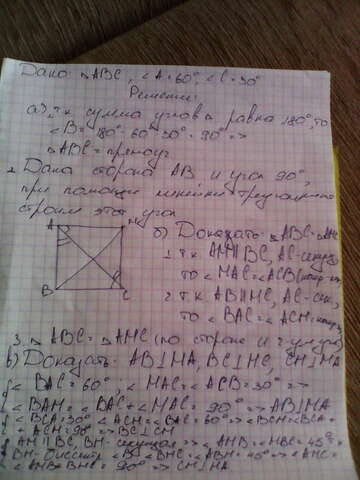 Дано: △ABC, <A=60°, <C=30°
Решение:
а) т.к сумма углов △ равна 180°, то
<B=180°-60°-30°=90° =>
△ABC=прямоуг
2. Дана сторона AB и угол 90°,
при помощи линейки треугольника
строим этот угол
A M
B C
б) Доказать: △ABC=△AMC
1. т.к AM||BC, AC-секущ
то <MAC=<ACB(накр-леж
2 т.к AB||MC, AC-сек,
то <BAC=<ACM(накрл,
3. △ABC=△AMC (по стороне и 2-м углам)
в) Доказать: AB⊥MA, BC⊥MC, CM⊥MA
<BAC=60°, <MAC=<ACB=30° =>
<BAM=<BAC+<MAC=90° => AB⊥MA
<BCA=30° <ACM=<BAC=60° => <BCM=<BCA+
+<ACM=90° => BC⊥CM
AM||BC, BM-секущая => <AMB=<MBC=45°
BM-биссектр <B <BMC=<ABM=45° => <AMC=
<AMB+BMC=90° => CM⊥MA